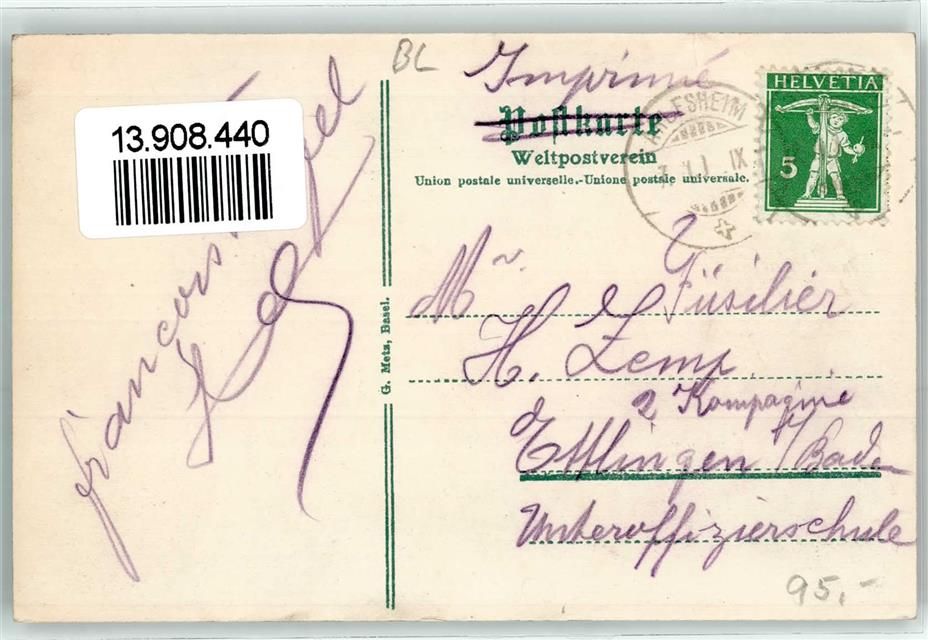 BL
Imprimé
13.908.440
Postkarte
Weltpostverein
Union postale universelle.-Unione postale universale.
HELVETIA
5
G. Metz, Basel.
Mr. Füsilier
H. Zemp
2 Kompagnie
Ettlingen / Baden
Unteroffizierschule
95,-